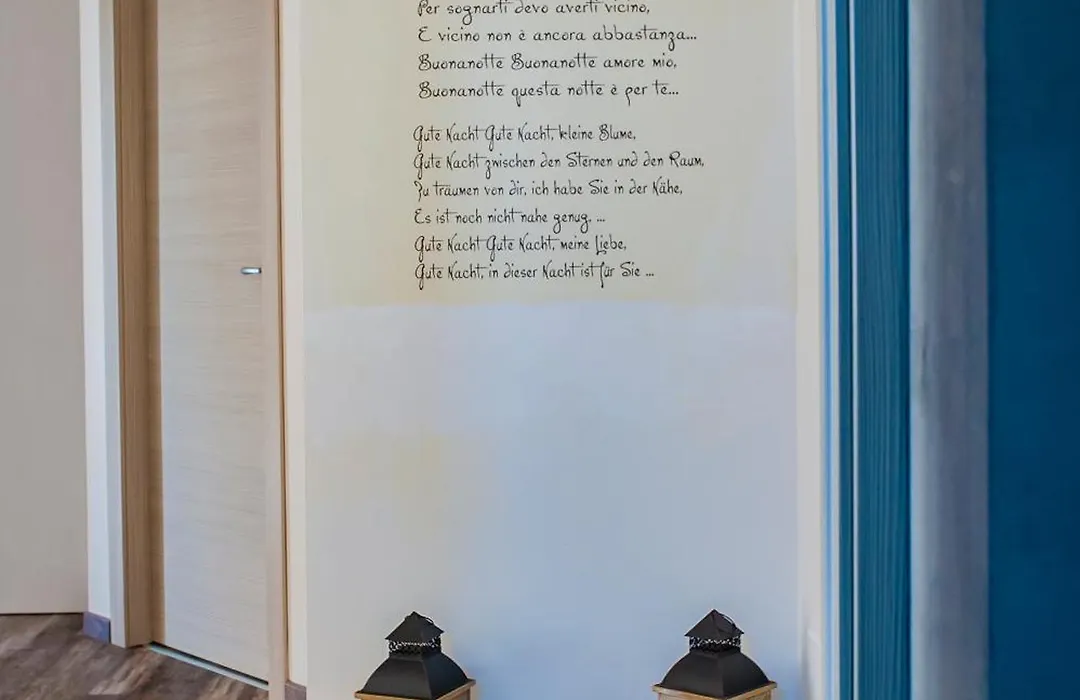 Per sognarti devo averti vicino,
E vicino non è ancora abbastanza...
Buonanotte Buonanotte amore mio,
Buonanotte questa notte è per te...
Gute Nacht Gute Nacht, kleine Blume,
Gute Nacht zwischen den Sternen und den Raum,
Zu träumen von dir, ich habe Sie in der Nähe,
Es ist noch nicht nahe genug. ...
Gute Nacht Gute Nacht, meine Liebe,
Gute Nacht, in dieser Nacht ist für Sie ...